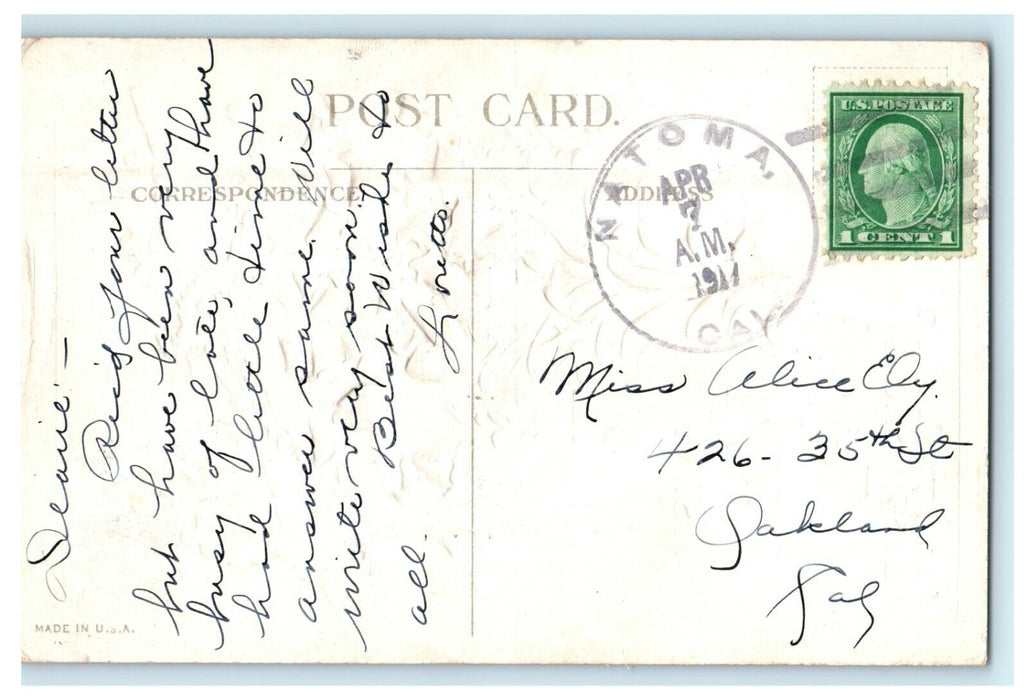 POST CARD.
CORRESPONDENCE
ADDRESS
NATOMA,
APR
7
A.M.
1917
CAL.
U.S. POSTAGE
1 CENT 1
Dearie –
Rec'd your letter
but have been very
busy of late, and have
had little time to
answer same. Will
write very soon.
Best Wishes to
all. Loretto.
Miss Alice Ely.
426 - 35th St
Oakland
Cal
MADE IN U.S.A.